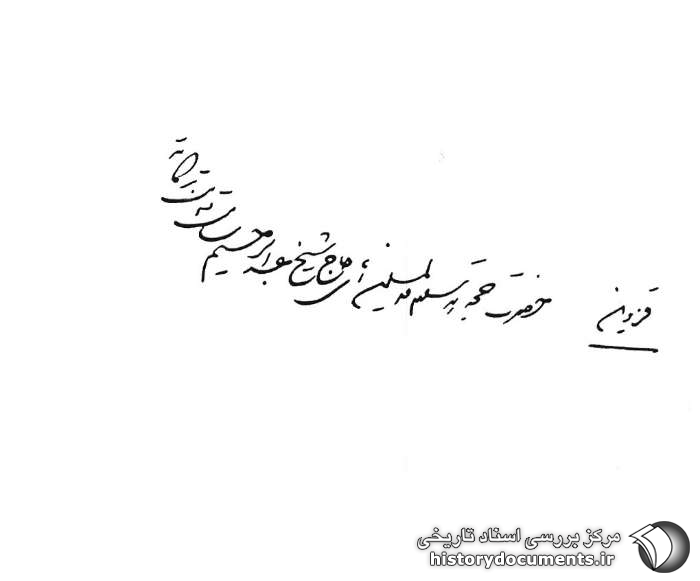 قزوین
حضرت حجة الاسلام والمسلمین آقای حاج شیخ عبدالرحیم سامت دامت برکاته
مرکز بررسی اسناد تاریخی
historydocuments.ir